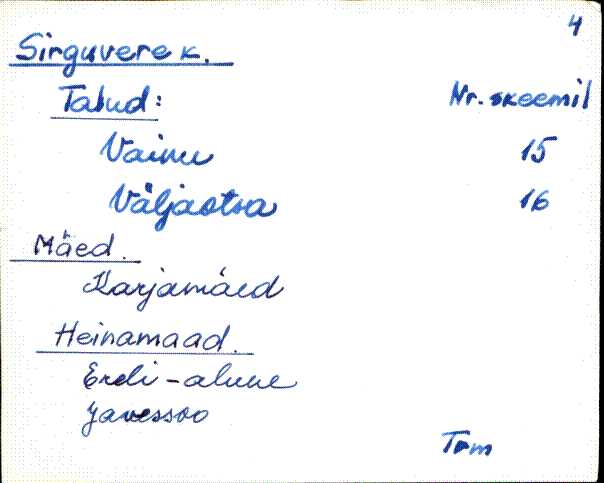 4
Sirguvere k.
Talud: Nr. skeemil
Vainu 15
Väljaotsa 16
Mäed.
Karjamäed
Heinamaad.
Erdi-alune
Javessoo
Trm